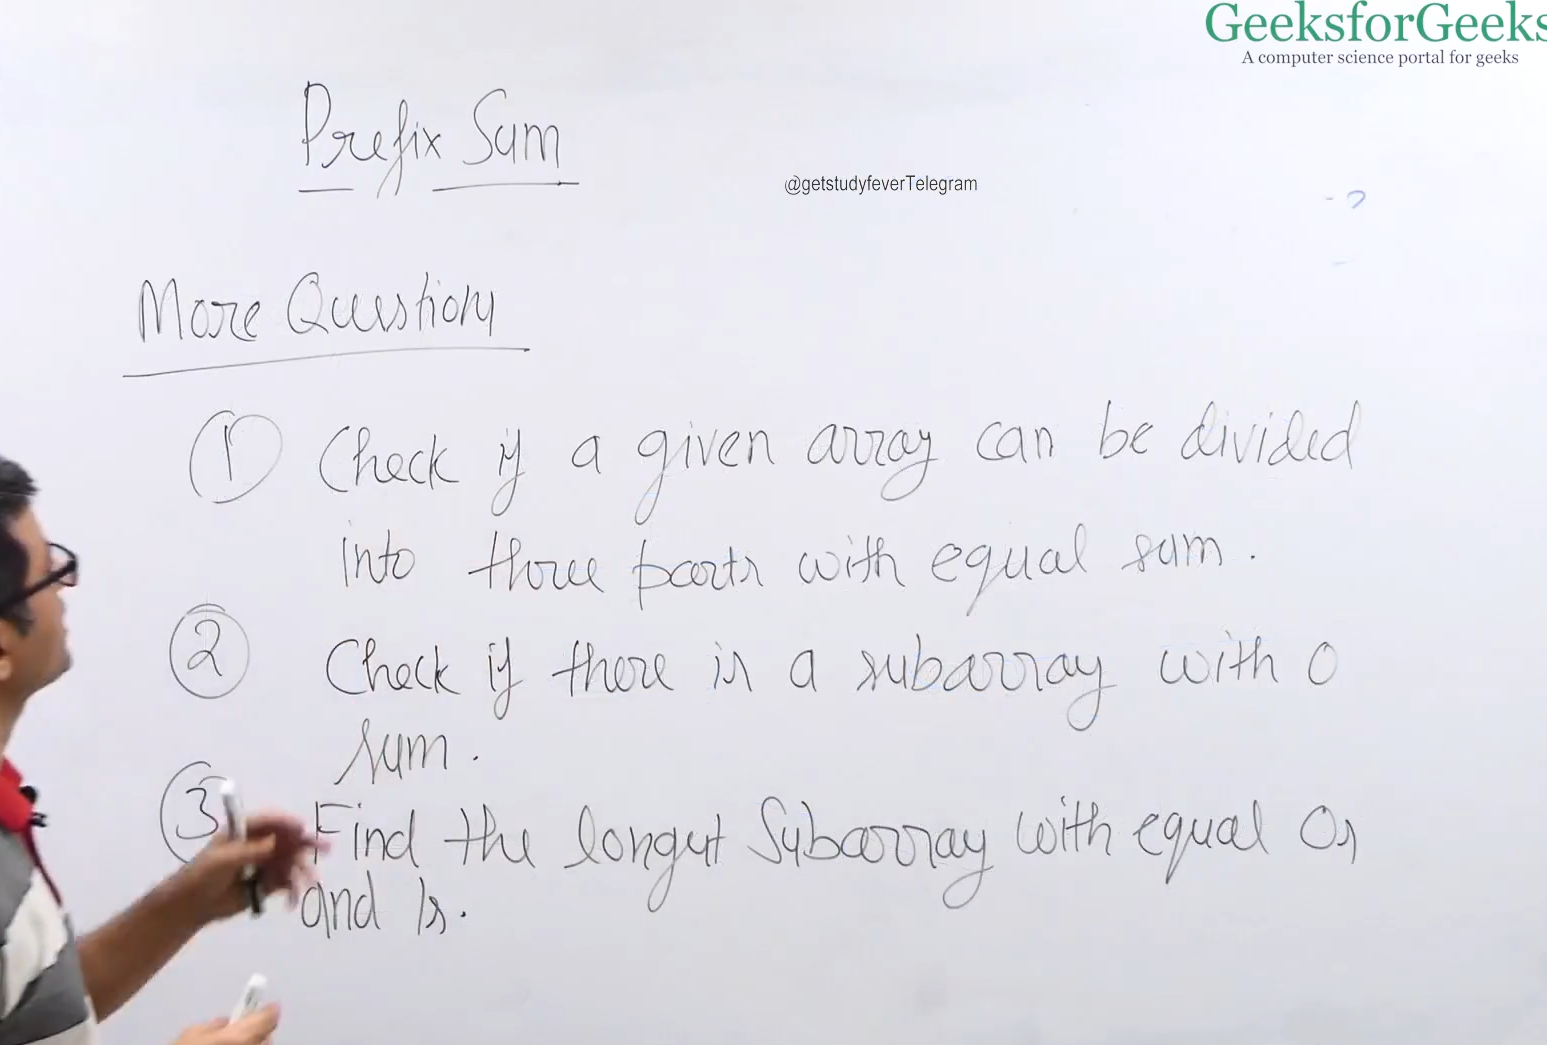 GeeksforGeeks
A computer science portal for geeks
Prefix Sum
@getstudyfeverTelegram
More Questions
1 Check if a given array can be divided
into three parts with equal sum.
2 Check if there is a subarray with 0
sum.
3 Find the longest Subarray with equal 0s
and 1s.